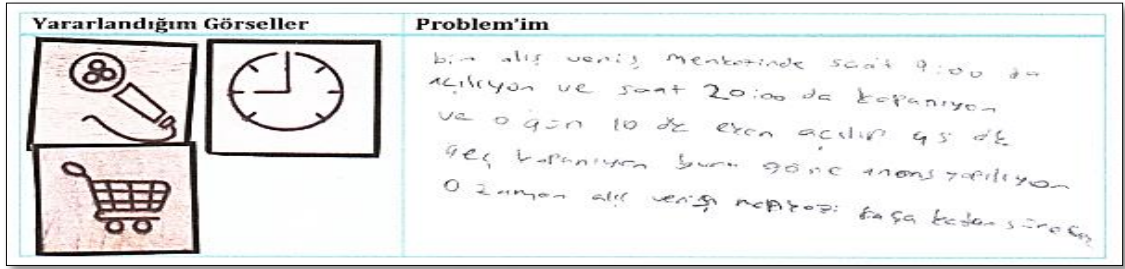 Yararlandığım Görseller
Problem'im
bir alış veriş merkezinde saat 9:00 da
açılıyor ve saat 20:00 da kapanıyor
ve o gün 10 dk erken açılıp 45 dk
geç kapanıyor buna göre anons yapılıyor
O zaman alış veriş merkezi kaça kadar sürecek